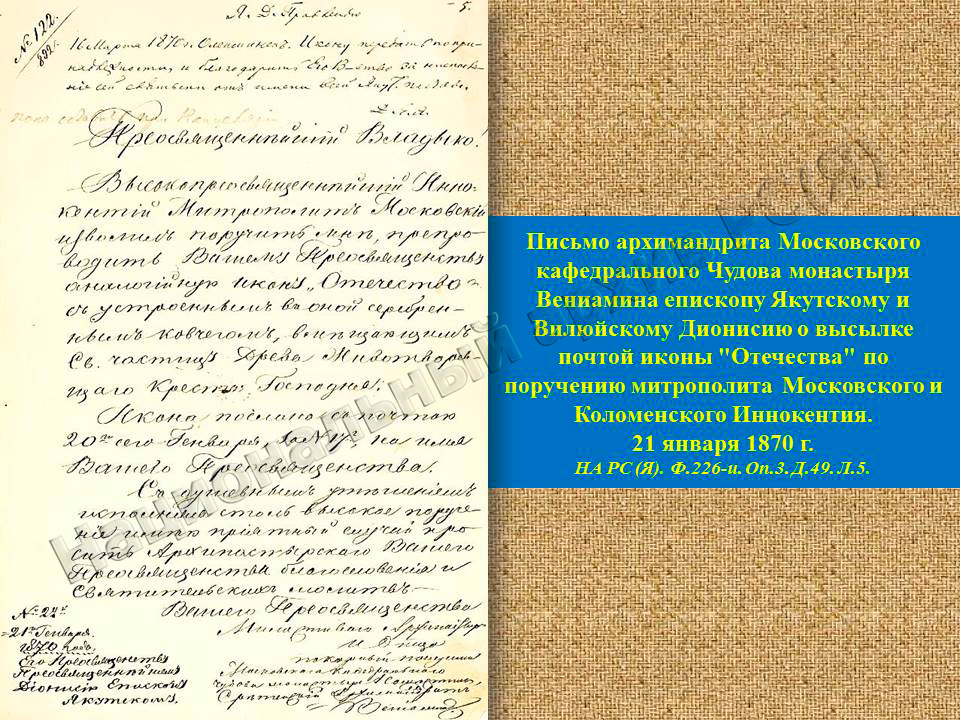 5.
№ 122.
892.
16 Марта 1870 г. Олекминск. Икону передать по при-
надлежности, и благодарить Его В-ство за ниспосла-
ніе сей святыни отъ имени всей Якут. паствы.
Преосвященнѣйшій Владыко!
Высокопреосвященнѣйшій Инно-
кентій Митрополитъ Московскій
изволилъ поручить мнѣ, препро-
водить Вашему Преосвященству
аналогійную икону „Отечество"
съ устроеннымъ въ оной серебрен-
нымъ ковчегомъ, вмѣщающимъ
Св. частицу Древа Животворя-
щаго Креста Господня.
Икона послана съ почтою
20го сего Генваря, за № на имя
Вашего Преосвященства.
Съ душевнымъ утѣшеніемъ
исполняя столь высокое поруче-
ніе имѣю пріятный случай про-
сить Архипастырскаго Вашего
Преосвященства благословенія и
Святительскихъ молитвъ.
Вашего Преосвященства
Милостиваго Архипастыря
и Отца
покорный послушникъ
Московскаго Кафедральнаго
Чудова монастыря
Архимандритъ
Веніаминъ
№ 22й
21 Генваря.
1870 года.
Его Преосвященству
Преосвященнѣйшему
Діонисію Епископу
Якутскому.
Письмо архимандрита Московского
кафедрального Чудова монастыря
Вениамина епископу Якутскому и
Вилюйскому Дионисию о высылке
почтой иконы "Отечества" по
поручению митрополита Московского и
Коломенского Иннокентия.
21 января 1870 г.
НА РС (Я). Ф.226-и. Оп.3. Д.49. Л.5.
Национальный архив РС(Я)